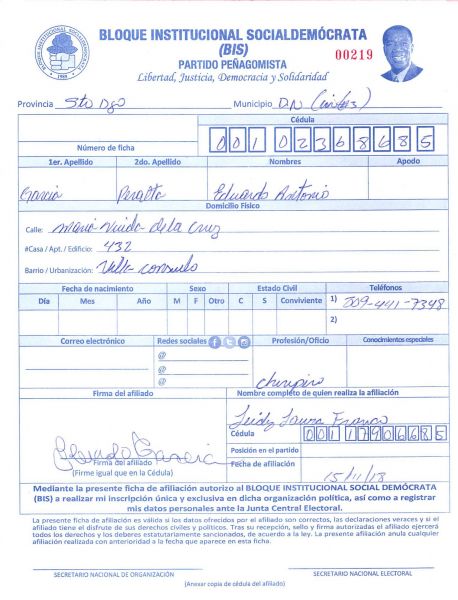 BLOQUE INSTITUCIONAL SOCIALDEMÓCRATA
(BIS)
00219
PARTIDO PEÑAGOMISTA
Libertad, Justicia, Democracia y Solidaridad
Provincia Sto Dgo Municipio D.N
Cédula
Número de ficha 001 0236868 5
1er. Apellido 2do. Apellido Nombres Apodo
Garcia Peralta Eduardo Antonio
Domicilio Físico
Calle: Maria Viuda de la Cruz
#Casa / Apt. / Edificio: 432
Barrio / Urbanización: Villa consuelo
Fecha de nacimiento Sexo Estado Civil Teléfonos
Día Mes Año M F Otro C S Conviviente 1) 809-441-7348
2)
Correo electrónico Redes sociales Profesión/Oficio Conocimientos especiales
@
@
@
chiripero
Firma del afiliado Nombre completo de quien realiza la afiliación
Leidy Laura Franco
Cédula 001 1790668 5
Posición en el partido
Firma del afiliado Fecha de afiliación
(Firme igual que en la Cédula) 15/11/18
Mediante la presente ficha de afiliación autorizo al BLOQUE INSTITUCIONAL SOCIAL DEMÓCRATA
(BIS) a realizar mi inscripción única y exclusiva en dicha organización política, así como a registrar
mis datos personales ante la Junta Central Electoral.
La presente ficha de afiliación es valida si los datos ofrecidos por el afiliado son correctos, las declaraciones veraces y si el
afiliado tiene el disfrute de sus derechos civiles y políticos. Tras su recepción, sello y firma autorizadas el afiliado ejercerá
todos los derechos y los deberes estatutariamente sancionados, de acuerdo a la ley. La presente afiliación anula cualquier
afiliación realizada con anterioridad a la fecha que aparece en esta ficha.
SECRETARIO NACIONAL DE ORGANIZACIÓN SECRETARIO NACIONAL ELECTORAL
(Anexar copia de cédula del afiliado)